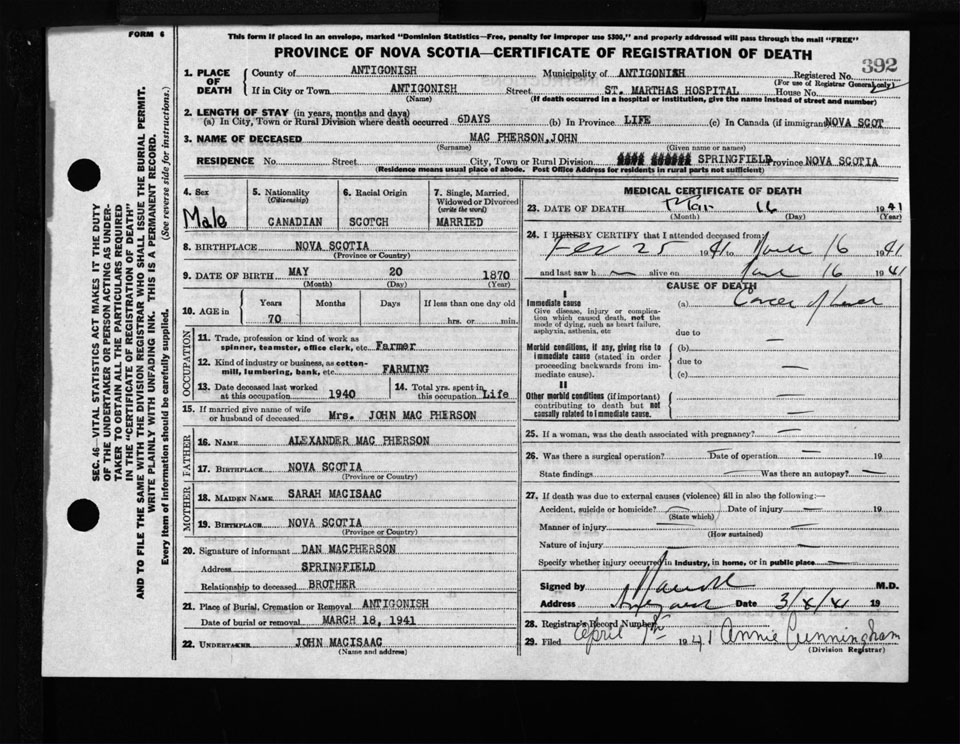 FORM 6
This form if placed in an envelope, marked "Dominion Statistics—Free, penalty for improper use $300," and properly addressed will pass through the mail "FREE"
PROVINCE OF NOVA SCOTIA—CERTIFICATE OF REGISTRATION OF DEATH
392
1. PLACE OF DEATH
County of ANTIGONISH Municipality of ANTIGONISH Registered No.
(For use of Registrar General only)
If in City or Town ANTIGONISH Street ST. MARTHAS HOSPITAL House No.
(Name) (If death occurred in a hospital or institution, give the name instead of street and number)
2. LENGTH OF STAY (in years, months and days)
(a) In City, Town or Rural Division where death occurred 6DAYS (b) In Province LIFE (c) In Canada (if immigrant) NOVA SCOT
3. NAME OF DECEASED MAC PHERSON,JOHN
(Surname) (Given name or names)
RESIDENCE No. Street City, Town or Rural Division SPRINGFIELD Province NOVA SCOTIA
(Residence means usual place of abode. Post Office Address for residents in rural parts not sufficient)
4. Sex
Male
5. Nationality
(Citizenship)
CANADIAN
6. Racial Origin
SCOTCH
7. Single, Married, Widowed or Divorced
(write the word)
MARRIED
8. BIRTHPLACE NOVA SCOTIA
(Province or Country)
9. DATE OF BIRTH MAY 20 1870
(Month) (Day) (Year)
10. AGE in
Years Months Days If less than one day old
70 hrs. or min.
OCCUPATION
11. Trade, profession or kind of work as
spinner, teamster, office clerk, etc. Farmer
12. Kind of industry or business, as cotton-
mill, lumbering, bank, etc. FARMING
13. Date deceased last worked
at this occupation 1940
14. Total yrs. spent in
this occupation Life
15. If married give name of wife
or husband of deceased Mrs. JOHN MAC PHERSON
FATHER
16. NAME ALEXANDER MAC PHERSON
17. BIRTHPLACE NOVA SCOTIA
(Province or Country)
MOTHER
18. MAIDEN NAME SARAH MACISAAC
19. BIRTHPLACE NOVA SCOTIA
(Province or Country)
20. Signature of informant DAN MACPHERSON
Address SPRINGFIELD
Relationship to deceased BROTHER
21. Place of Burial, Cremation or Removal ANTIGONISH
Date of burial or removal MARCH 18, 1941
22. UNDERTAKER JOHN MACISAAC
(Name and address)
MEDICAL CERTIFICATE OF DEATH
23. DATE OF DEATH Mar 16 1941
(Month) (Day) (Year)
24. I HEREBY CERTIFY that I attended deceased from
Feb 25 1941 to March 16 1941
and last saw h m alive on March 16 1941
CAUSE OF DEATH
I
Immediate cause (a) Cancer of
Give disease, injury or complica-
tion which caused death, not the
mode of dying, such as heart failure,
asphyxia, asthenia, etc
due to
Morbid conditions, if any, giving rise to (b)
immediate cause (stated in order due to
proceeding backwards from im-
mediate cause). (c)
II
Other morbid conditions (if important)
contributing to death but not
causally related to immediate cause.
25. If a woman, was the death associated with pregnancy?
26. Was there a surgical operation? Date of operation 19
State findings Was there an autopsy?
27. If death was due to external causes (violence) fill in also the following:—
Accident, suicide or homicide? Date of injury 19
(State which)
Manner of injury
(How sustained)
Nature of injury
Specify whether injury occurred in industry, in home, or in public place
Signed by M.D.
Address Date 3/4/41 19
28. Registrar's Record Number
29. Filed April 1st 1941 Annie Cunningham
(Division Registrar)
SEC. 46—VITAL STATISTICS ACT MAKES IT THE DUTY
OF THE UNDERTAKER OR PERSON ACTING AS UNDER-
TAKER TO OBTAIN ALL THE PARTICULARS REQUIRED
IN THE "CERTIFICATE OF REGISTRATION OF DEATH"
AND TO FILE THE SAME WITH THE DIVISION REGISTRAR WHO SHALL ISSUE THE BURIAL PERMIT.
WRITE PLAINLY WITH UNFADING INK. THIS IS A PERMANENT RECORD.
Every item of information should be carefully supplied. (See reverse side for instructions.)